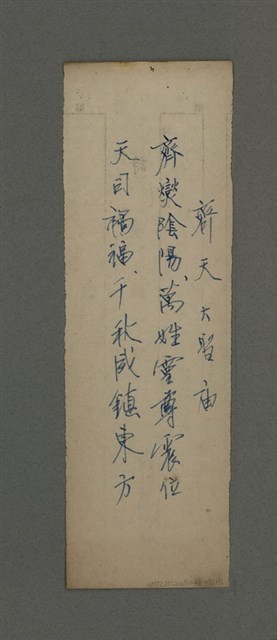 齊天大聖庙
齊燮陰陽、萬姓靈尊震位
天司禍福、千秋威鎮東方